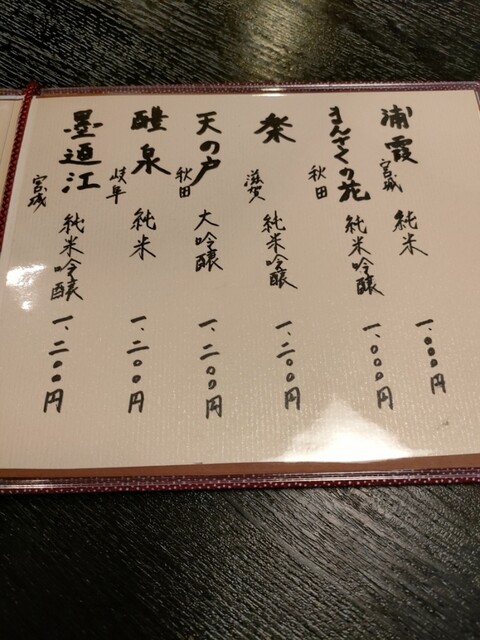 浦霞 宮城 純米 一、〇〇〇円
まんさくの花 秋田 純米吟醸 一、〇〇〇円
滋賀 純米吟醸 一、二〇〇円
天の戸 秋田 大吟醸 一、二〇〇円
醴泉 岐阜 純米 一、二〇〇円
墨廼江 宮城 純米吟醸 一、二〇〇円